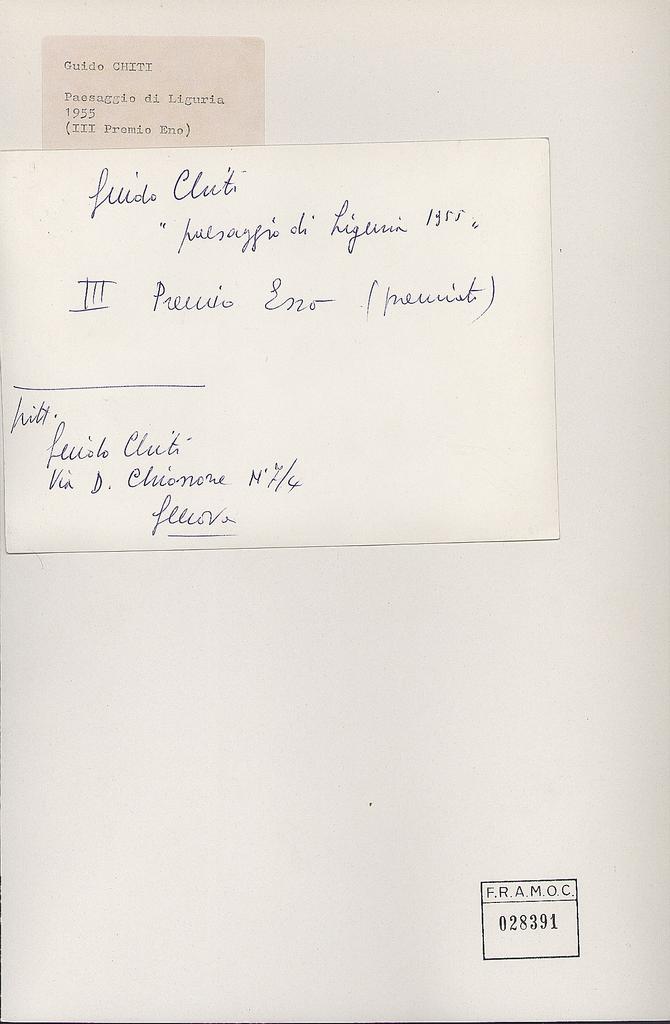 Guido CHITI
Paesaggio di Liguria
1955
(III Premio Eno)
Guido Chiti
" paesaggio di Liguria 1955 "
III Premio Esso (premiato)
pitt.
Guido Chiti
Via D. Chiossone N° 7/4
Genova
F.R.A.M.O.C.
028391